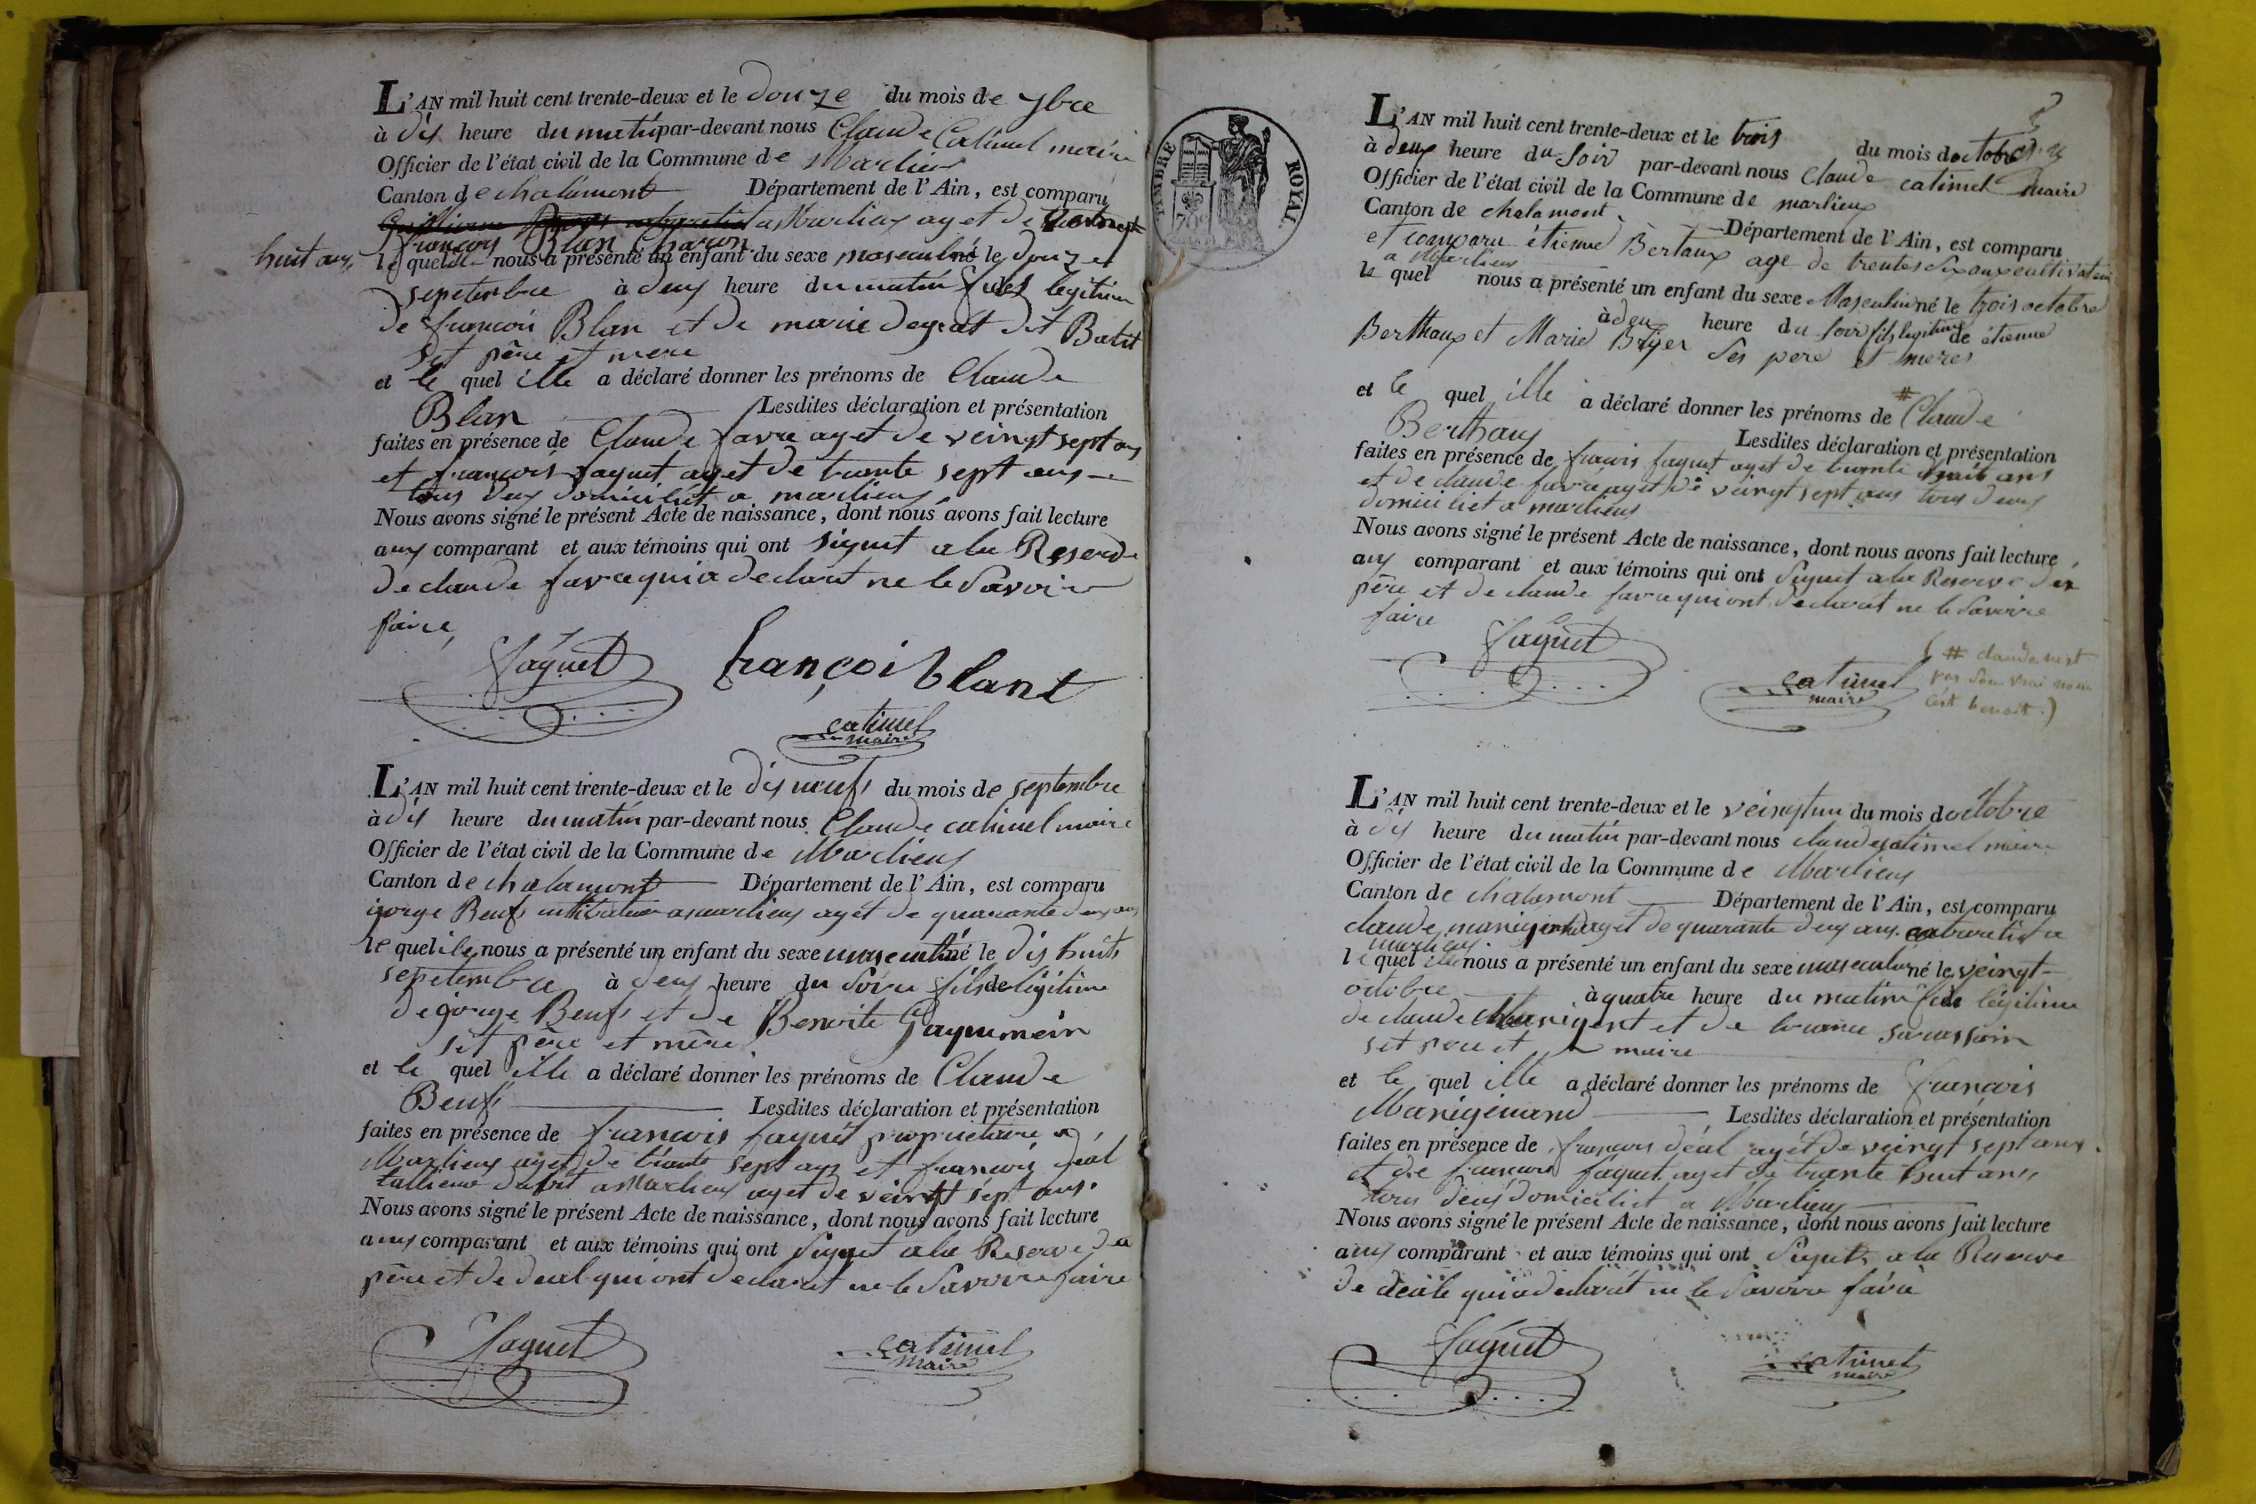 L'AN mil huit cent trente-deux et le douze du mois de 7bre
à dix heure du matin par-devant nous Claude Catimel maire
Officier de l'état civil de la Commune de Marlieu
Canton de chalamont Département de l'Ain, est comparu
a Marlieux aget de
françois Blan Charon
huit ans,
le quel ille nous a présenté un enfant du sexe masculin né le douze
sepetembre à deux heure du matin fils legitime
de françois Blan et de marie degeat dit Batit
set père et mere
et le quel ille a déclaré donner les prénoms de Claude
Blan Lesdites déclaration et présentation
faites en présence de Claude favre aget de veingt sept ans
et françois faguet aget de trante sept ans
tous deux domicilict a marlieux
Nous avons signé le présent Acte de naissance, dont nous avons fait lecture
aux comparant et aux témoins qui ont signet a la Reserve
de claude favre qui a declarét ne le Savoir
faire,
faguet françoi blant
catimel
maire
L'AN mil huit cent trente-deux et le dix neufs du mois de septembre
à dix heure du matin par-devant nous Claude catimel maire
Officier de l'état civil de la Commune de Marlieux
Canton de chalamont Département de l'Ain, est comparu
gorge Beuf cultivateur a marlieux agét de quarante deux ans
le quel ille nous a présenté un enfant du sexe masculin né le dix huits
sepetembre à deux heure du Soire fils de légitime
de gorge Beufs et de Benoite Gaquemein
set père et mère
et le quel ille a déclaré donner les prénoms de Claude
Beufs Lesdites déclaration et présentation
faites en présence de francois faguét propriétaire a
Marlieux aget de trante sept ans et françois déal
tallieur dabit a Marlieux aget de veingt sept ans.
Nous avons signé le présent Acte de naissance, dont nous avons fait lecture
aux comparant et aux témoins qui ont Signet a la Reserve du
père et de deal qui ont declarét ne le Savoire faire
faguet catimel
maire
TIMBRE ROYAL
L'AN mil huit cent trente-deux et le trois du mois doctobre
à deux heure du Soir par-devant nous Claude catimel maire
Officier de l'état civil de la Commune de marlieux
Canton de chalamont Département de l'Ain, est comparu
et comparu étienne Bertaux age de trentes six ans cultivateur
a Marlieux
le quel nous a présenté un enfant du sexe Masculin né le trois octobre
à deux heure du soir fils legitime de étienne
Berthaux et Marie Bryer Ses pere et meres
et le quel ille a déclaré donner les prénoms de # Claude
Berthaux Lesdites déclaration et présentation
faites en présence de francois faguet aget de trante huit ans
et de claude favre aget de veingt sept ans tous deux
domiciliet a marlieux
Nous avons signé le présent Acte de naissance, dont nous avons fait lecture
aux comparant et aux témoins qui ont Signet a la Reserve du
père et de claude favre qui ont declarét ne le Savoire
faire
faguet catimel
maire
(# claude n'est
pas son vrai nom
c'est benoit.)
L'AN mil huit cent trente-deux et le veingt un du mois doctobre
à dix heure du matin par-devant nous claude catimel maire
Officier de l'état civil de la Commune de Marlieux
Canton de chalamont Département de l'Ain, est comparu
claude aget de quarante deux ans cabaretist a
marlieux.
le quel ille nous a présenté un enfant du sexe masculin né le veingt
octobre à quatre heure du matin fils légitime
de claude et de
set pere et maire
et le quel ille a déclaré donner les prénoms de francois
Lesdites déclaration et présentation
faites en présence de françois déal agét de veingt sept ans
et de francois faguet aget de trante huit ans
tous deux domiciliet a Marlieux
Nous avons signé le présent Acte de naissance, dont nous avons fait lecture
aux comparant et aux témoins qui ont Signets a la Reserve
de déale qui a declarét ne le Savoire faire
faguet catimel
maire